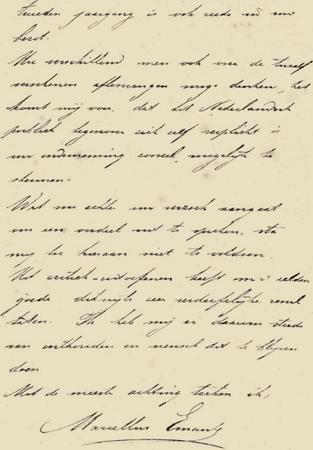 tweeden jaargang is ook reeds in uw
bezit.
Hoe verschillend men ook over de twaalf
verschenen afleveringen moge denken, het
komt mij voor, dat het Nederlandsch
publiek tegenover zich zelf verplicht is
uw onderneming zooveel mogelijk te
steunen.
Wat nu echter uw verzoek aangaat
om een oordeel uit te spreken, sta
mij toe hieraan niet te voldoen.
Het critiek-uitoefenen heeft m.i. zelden
goede dikwijls zeer verderfelijke resul
taten. Ik heb mij er daarom steeds
van onthouden en wensch dit te blijven
doen
Met de meeste achting teeken ik,
Marcellus Emants